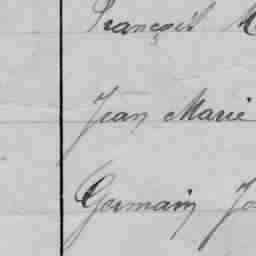 François M
Jean Marie
Germain Jo